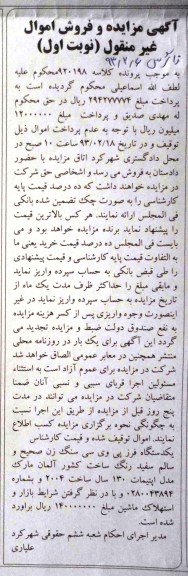 آگهی مزایده و فروش اموال
غیر منقول (نوبت اول)
به موجب پرونده کلاسه ۹۲۰۱۹۸ محکوم علیه
لطف الله اسماعیلی محکوم گردیده است به
پرداخت مبلغ ۲۹۴۲۷۷۷۲۴ ریال در حق محکوم
له مهدی صدیق و پرداخت مبلغ ۱۲۰۰۰۰۰۰
میلیون ریال با توجه به عدم پرداخت اموال ذیل
توقیف و در تاریخ ۹۳/۰۲/۱۸ ساعت ۱۰ صبح در
محل دادگستری شهرکرد اتاق مزایده با حضور
دادستان به فروش می رسد و اشخاصی حق شرکت
در مزایده خواهند داشت که ده درصد قیمت پایه
کارشناسی را به صورت چک تضمین شده بانکی
فی المجلس ارائه نمایند. هر کس بالاترین قیمت
را پیشنهاد نماید برنده مزایده خواهد بود و می
بایست فی المجلس ده درصد قیمت خرید یعنی ما
به التفاوت قیمت پایه کارشناسی و قیمت پیشنهادی
را طی فیش بانکی به حساب سپرده واریز نماید
و مابقی مبلغ را حداکثر ظرف مدت یک ماه از
تاریخ مزایده به حساب سپرده واریز نماید در غیر
اینصورت وجوه واریزی پس از کسر هزینه مزایده
به نفع صندوق دولت ضبط و مزایده تجدید می
گردد این آگهی برای یک بار در روزنامه محلی
منتشر همچنین در معابر عمومی الصاق خواهد شد
شرکت در مزایده برای عموم آزاد است به استثناء
مسئولین اجرا قربای سببی و نسبی آنان ضمنا
متقاضیان شرکت در مزایده می توانند در مدت
پنج روز قبل از مزایده از طریق این اجرا نسبت
به چگونگی نحوه برگزاری مزایده کسب اطلاع
نمایند. اموال توقیف شده و قیمت کارشناس
یکدستگاه فرز پی وی سی سنگ زن صحیح و
سالم سفید رنگ ساخت کشور آلمان مارک
مدل اپتیمات ۱۳۰ سال ساخت ۲۰۰۴ و بشماره
۰۲۸۰۰۴۳۸۹۴ و با در نظر گرفتن شرایط بازار و
استهلاک ماشین مبلغ ۱۴۰۰۰۰۰۰۰ ریال براورد
شده است.
مدیر اجرای احکام شعبه ششم حقوقی شهرکرد
علیاری